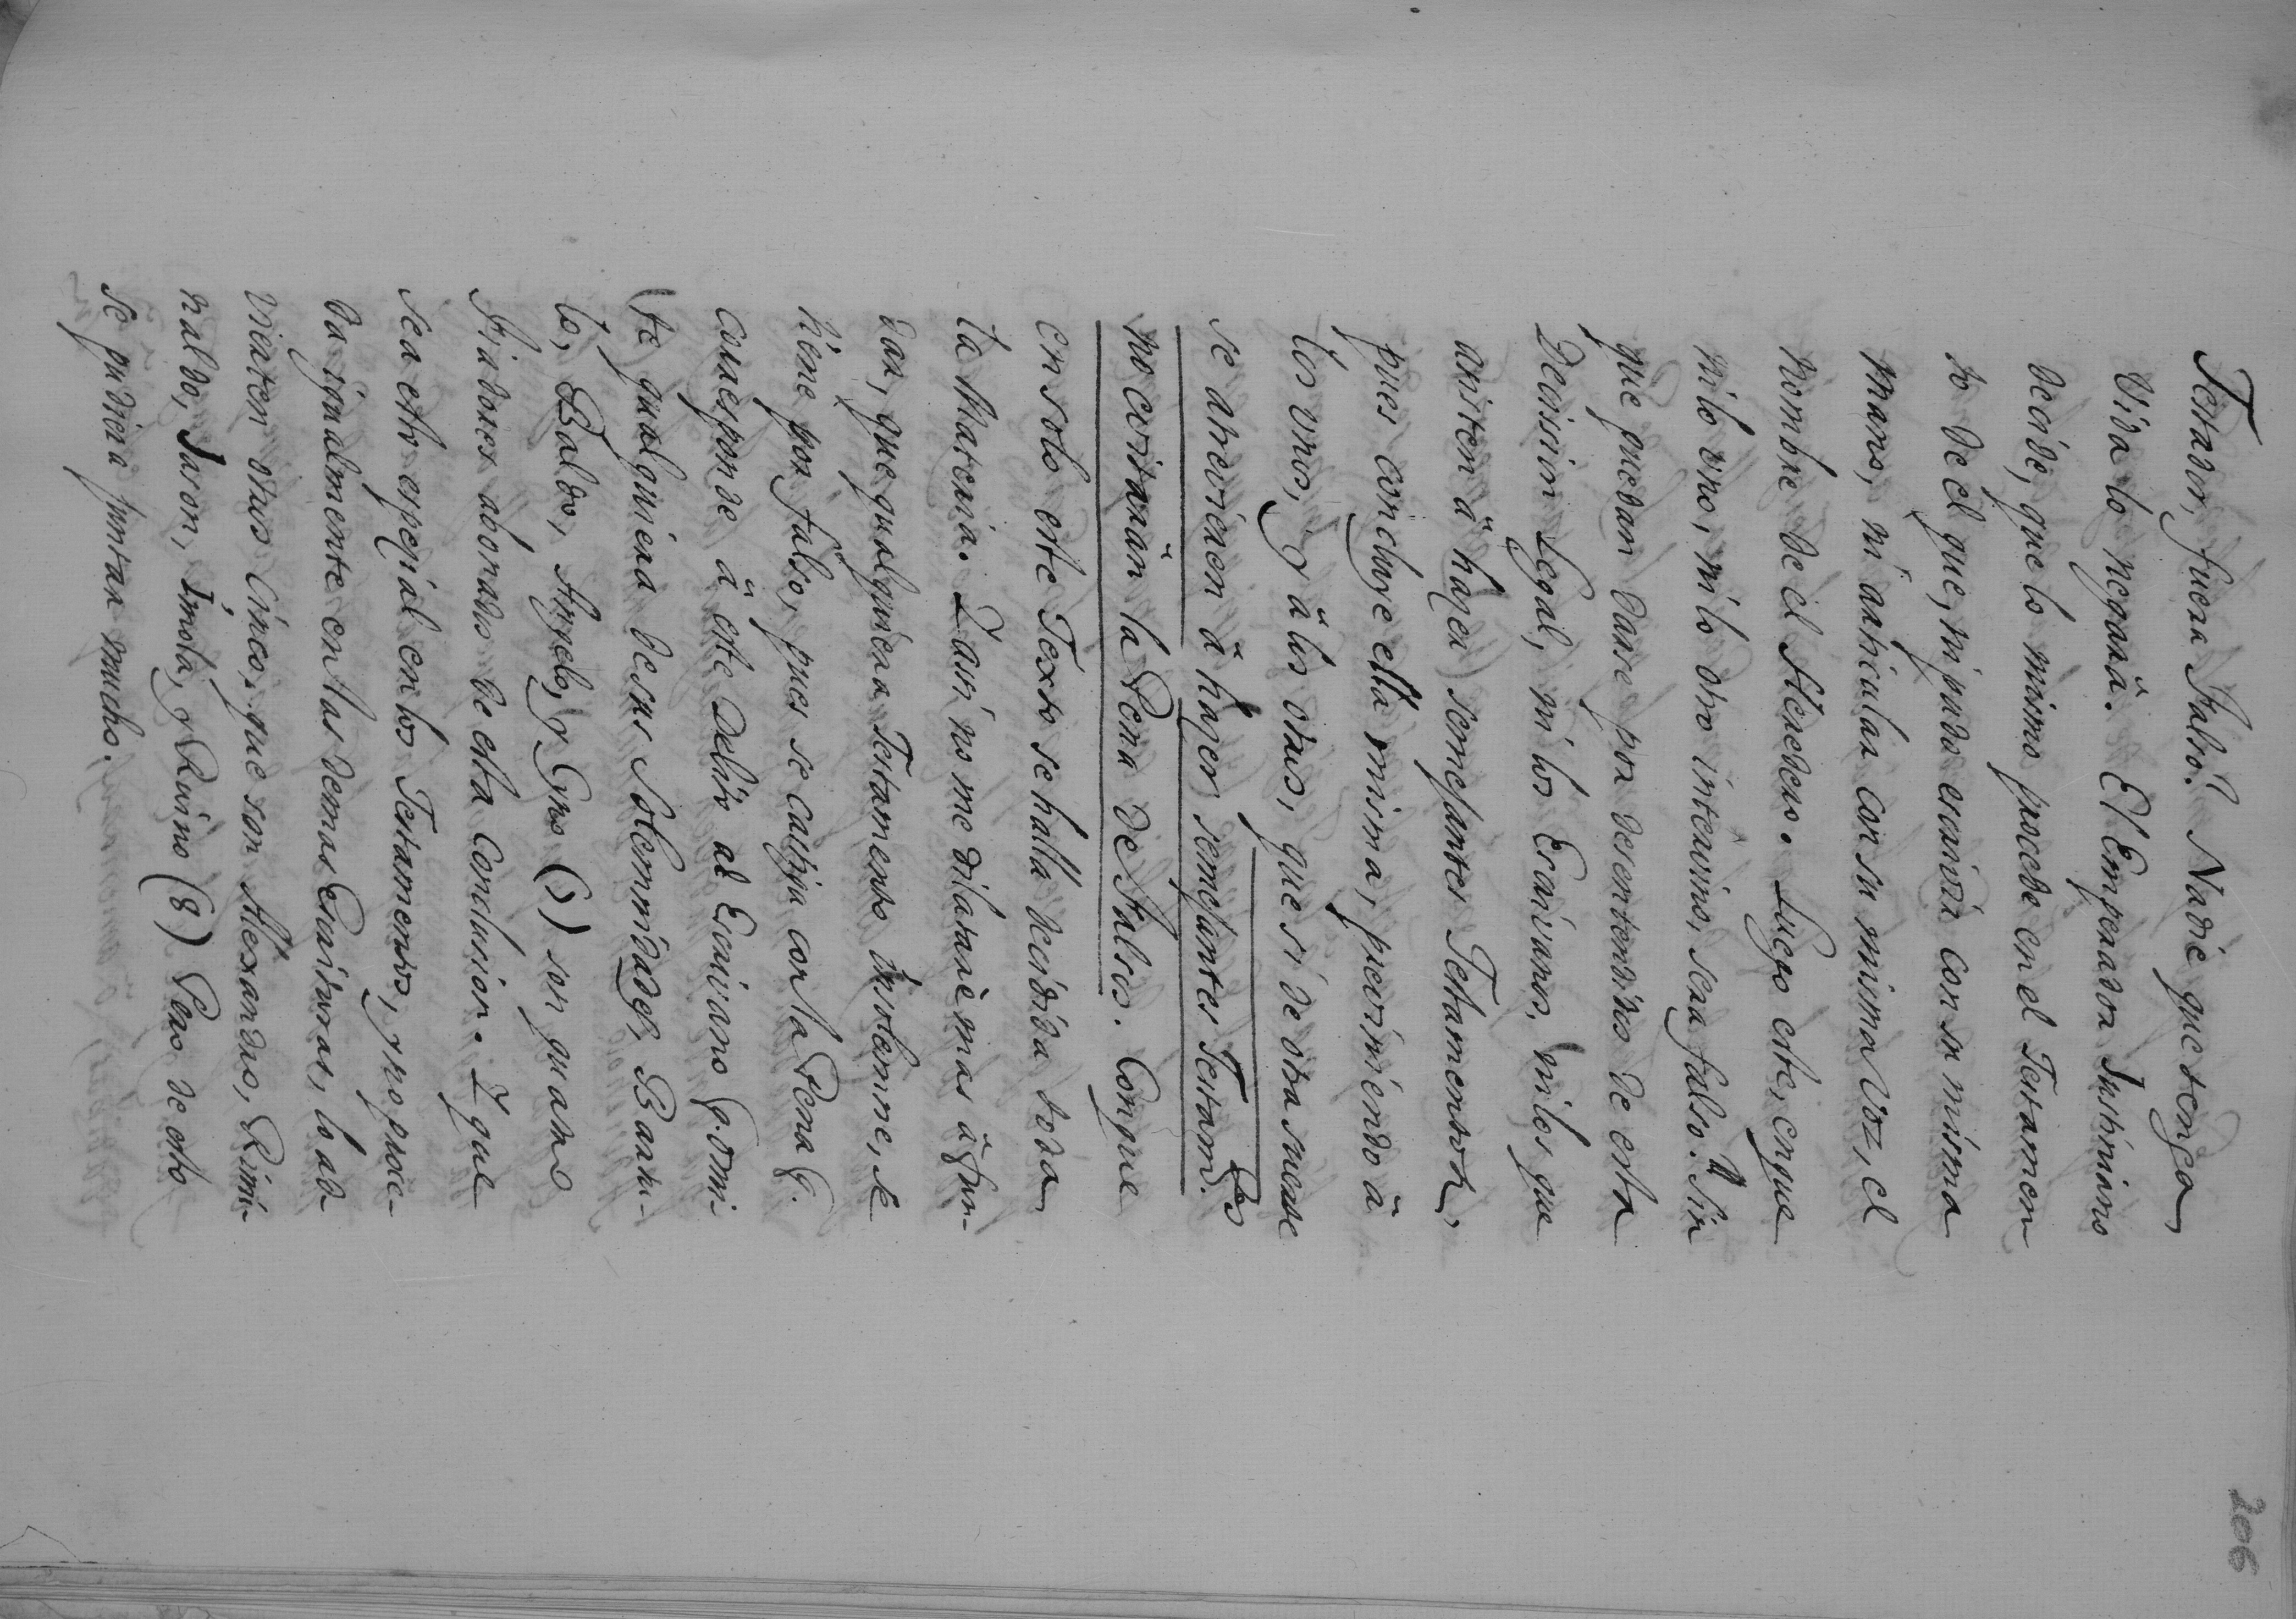 206
Testador, fuera Falso? Nadie que tenga
Vida lo negarà. El Emperador Justiniano
decide, que lo mismo procede en el Testamen
to de el que, ni pudo escrivir con su misma
mano, ni articular con su misma Voz, el
nombre de el Heredero. Luego este, en que
ni lo uno, ni lo otro intervino, sera falso. Sin
que puedan darse por desentendidos de esta
Decision Legal, ni los Escrivanos, ni los que
asisten à hazer semejantes Testamentos,
pues concluye ella misma, previniendo à
los unos, y à los otros, que si de otra suerte
se atrevieren à hazer semejantes Testam.tos
no evitaràn la Pena de Falsos. Conque
en solo este Texto se halla decidida toda
la Materia. I aun no me dilatarè mas à fun-
dar, que qualquiera Testamento insolemne, se
tiene por falso, pues se castiga con la Pena q.
corresponde à este Delito al Escrivano q. omi-
te qualquiera de sus Solemnidades, Bartu-
lo, Baldo, Angelo, y Cyno () son quatro
Fiadores abonados de esta Conclusion. I que
sea esto especial en los Testamentos, y no proce-
da igualmente en las demas Escrituras, lo ad-
vierten otros Cinco, que son Alexandro, Rimi-
naldo, Jason, Imola, y Ruino (8) Pero de esto
se pudiera juntar mucho.